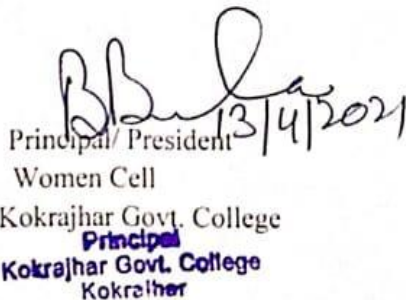 13/4/2021
Principal/ President
Women Cell
Kokrajhar Govt. College
Principal
Kokrajhar Govt. College
Kokrajhar